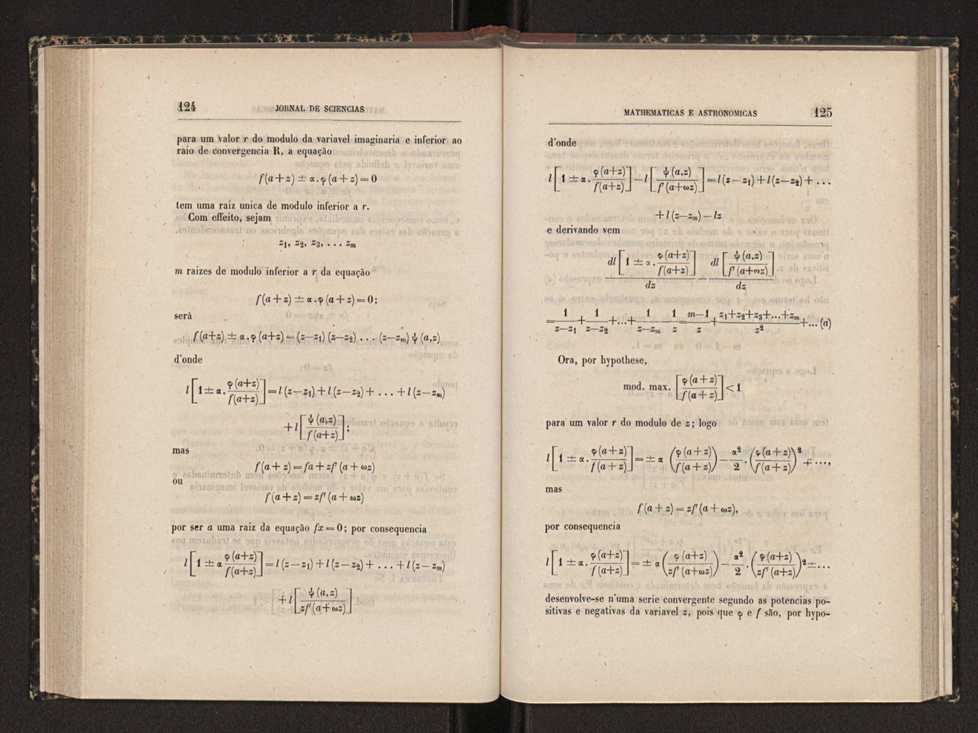 124 JORNAL DE SCIENCIAS
para um valor r do modulo da variavel imaginaria e inferior ao
raio de convergencia R, a equação
f(a+z) ± α.φ(a+z)=0
tem uma raiz unica de modulo inferior a r.
Com effeito, sejam
z₁, z₂, z₃, . . . zₘ
m raizes de modulo inferior a r da equação
f(a+z) ± α.φ(a+z)=0;
será
f(a+z) ± α.φ(a+z)=(z—z₁)(z—z₂) . . . (z—zₘ)ψ(a,z)
d'onde
l[1 ± α.φ(a+z)/f(a+z)]=l(z—z₁)+l(z—z₂)+ . . . +l(z—zₘ)
+l[ψ(a,z)/f(a+z)];
mas
f(a+z)=fa+zf'(a+ωz)
ou
f(a+z)=zf'(a+ωz)
por ser a uma raiz da equação fx=0; por consequencia
l[1 ± α φ(a+z)/f(a+z)]=l(z—z₁)+l(z—z₂)+ . . . +l(z—zₘ)
+l[ψ(a,z)/zf'(a+ωz)]
MATHEMATICAS E ASTRONOMICAS 125
d'onde
l[1 ± α.φ(a+z)/f(a+z)]—l[ψ(a,z)/f'(a+ωz)]=l(z—z₁)+l(z—z₂)+ . . .
+l(z—zₘ)—lz
e derivando vem
dl[1 ± α.φ(a+z)/f(a+z)]/dz — dl[ψ(a,z)/f'(a+ωz)]/dz
=1/z—z₁+1/z—z₂+...+1/z—zₘ—1/z=m—1/z+z₁+z₂+z₃+...+zₘ/z²+...(a)
Ora, por hypothese,
mod. max. [φ(a+z)/f(a+z)]<1
para um valor r do modulo de z; logo
l[1 ± α.φ(a+z)/f(a+z)]= ± α (φ(a+z)/f(a+z))—α²/2.(φ(a+z)/f(a+z))² ± ...,
mas
f(a+z)=zf'(a+ωz),
por consequencia
l[1 ± α.φ(a+z)/f(a+z)]= ± α(φ(a+z)/zf'(a+ωz))—α²/2.(φ(a+z)/zf'(a+z))² ± ...
desenvolve-se n'uma serie convergente segundo as potencias po-
sitivas e negativas da variavel z, pois que φ e f são, por hypo-